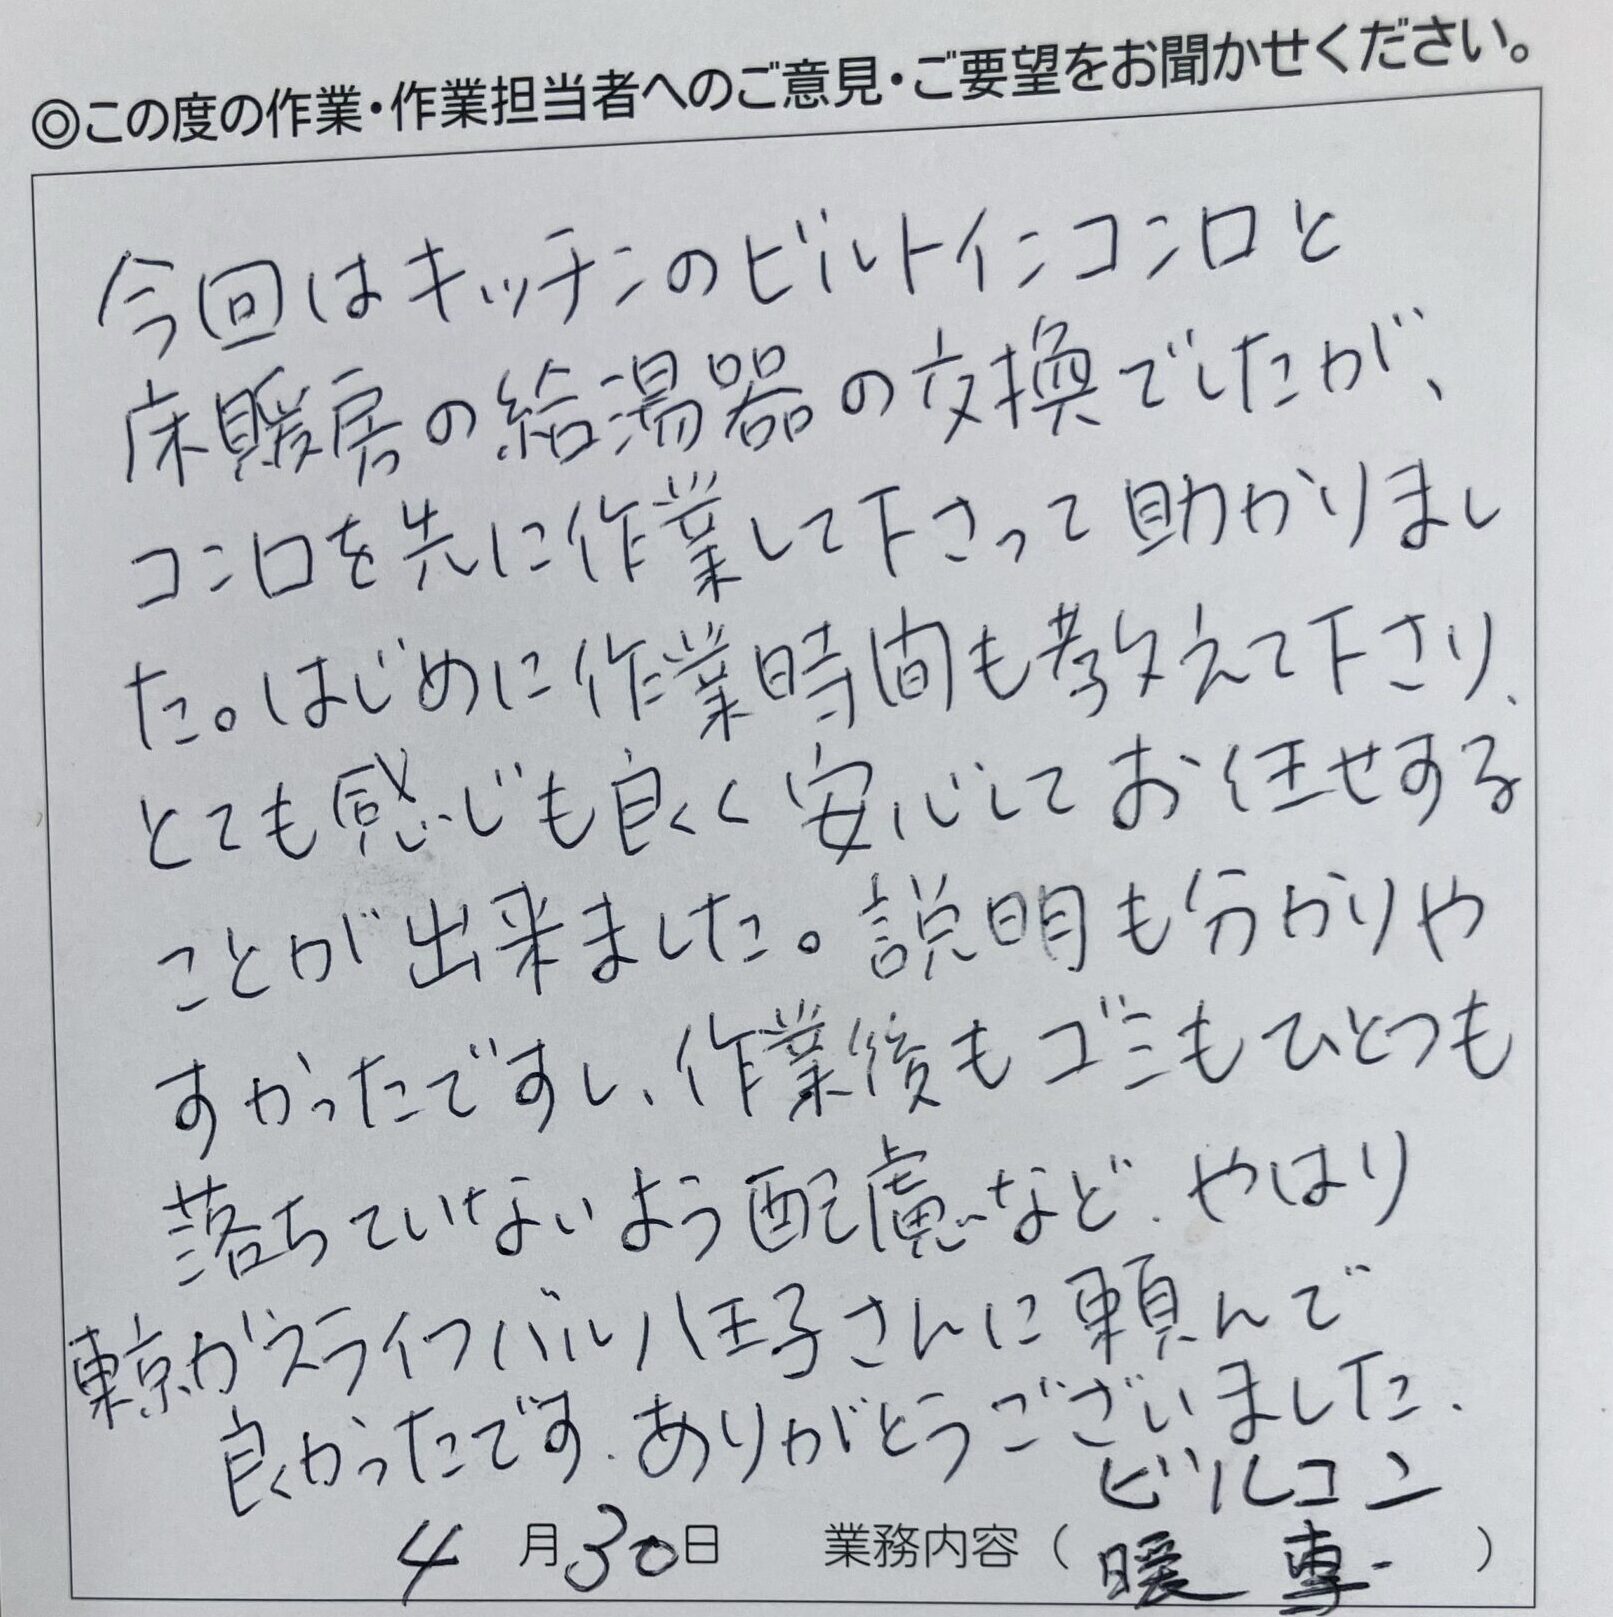 ◎この度の作業・作業担当者へのご意見・ご要望をお聞かせください。
今回はキッチンのビルトインコンロと
床暖房の給湯器の交換でしたが、
コンロを先に作業して下さって助かりまし
た。はじめに作業時間も教えて下さり、
とても感じも良く安心してお任せする
ことが出来ました。説明も分かりや
すかったですし、作業後もゴミもひとつも
落ちていないよう配慮など、やはり
東京ガスライフバル八王子さんに頼んで
良かったです。ありがとうございました。
ビルコン
4月30日 業務内容(暖専)